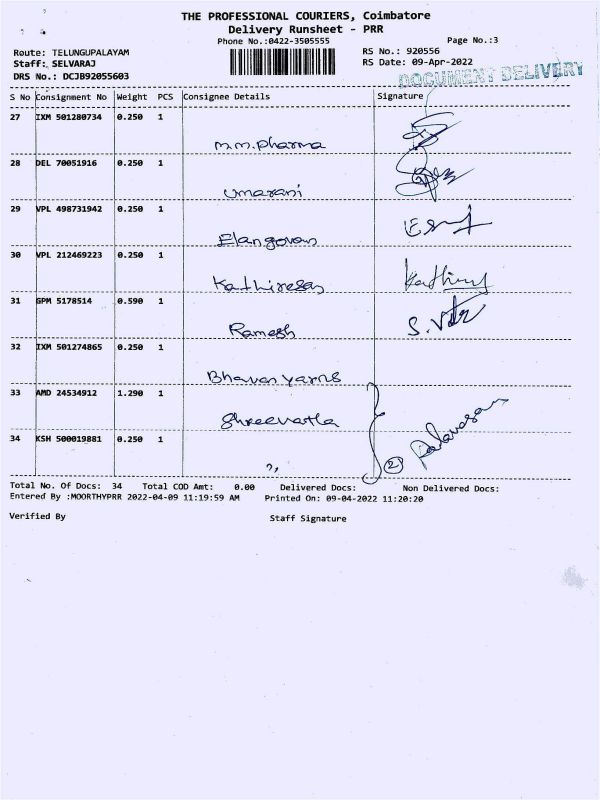 THE PROFESSIONAL COURIERS, Coimbatore
Delivery Runsheet - PRR
Phone No.:0422-3505555
Page No.:3
Route: TELUNGUPALAYAM
RS No.: 920556
Staff: SELVARAJ
RS Date: 09-Apr-2022
DRS No.: DCJB92055603
DOCUMENT DELIVERY
S No Consignment No Weight PCS Consignee Details Signature
27 IXM 501280734 0.250 1
M.M. Pharma
28 DEL 70051916 0.250 1
Umarani
29 VPL 498731942 0.250 1
Elangovan
30 VPL 212469223 0.250 1
Kathiresan
31 GPM 5178514 0.590 1
Ramesh
32 IXM 501274865 0.250 1
Bhavan yarns
33 AMD 24534912 1.290 1
34 KSH 500019881 0.250 1
2
Total No. Of Docs: 34 Total COD Amt: 0.00 Delivered Docs: Non Delivered Docs:
Entered By :MOORTHYPRR 2022-04-09 11:19:59 AM Printed On: 09-04-2022 11:20:20
Verified By Staff Signature